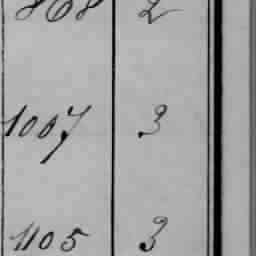 868 2
1007 3
1105 3